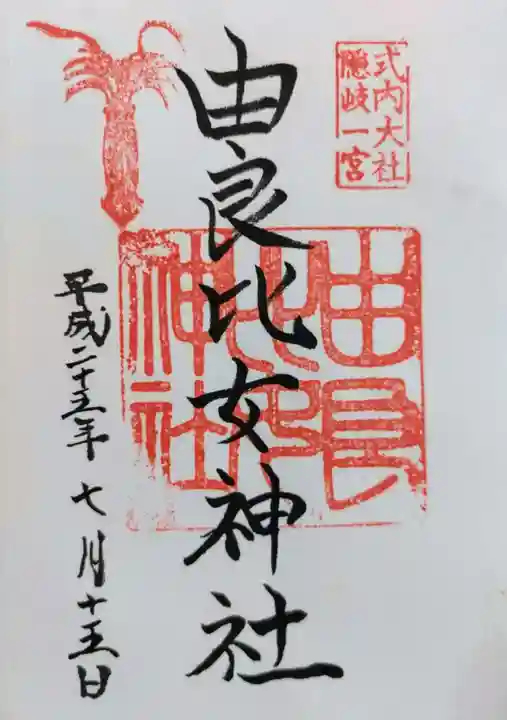 式内大社
隠岐一宮
由良比女神社
由良
比女
神社
平成二十五年七月十五日